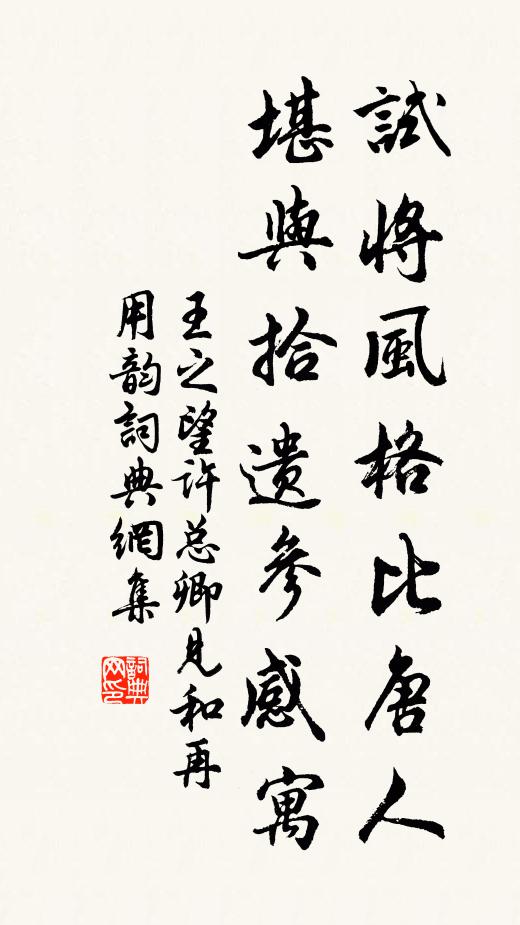 試將風格比唐人
堪與拾遺參感寓
王之望许总卿見和再
用韵詞典網集
詞典网印